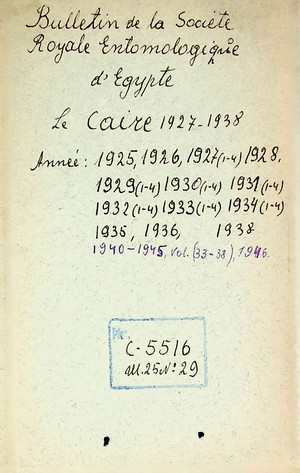 Bulletin de la Société
Royale Entomologique
d'Egypte
Le Caire 1927-1938
Anneé: 1925, 1926, 1927(1-4) 1928,
1929(1-4) 1930(1-4) 1931(1-4)
1932(1-4) 1933(1-4) 1934(1-4)
1935, 1936, 1938
1940-1945, Vol. (33-38), 1946.
C-5516
III.25 N° 29